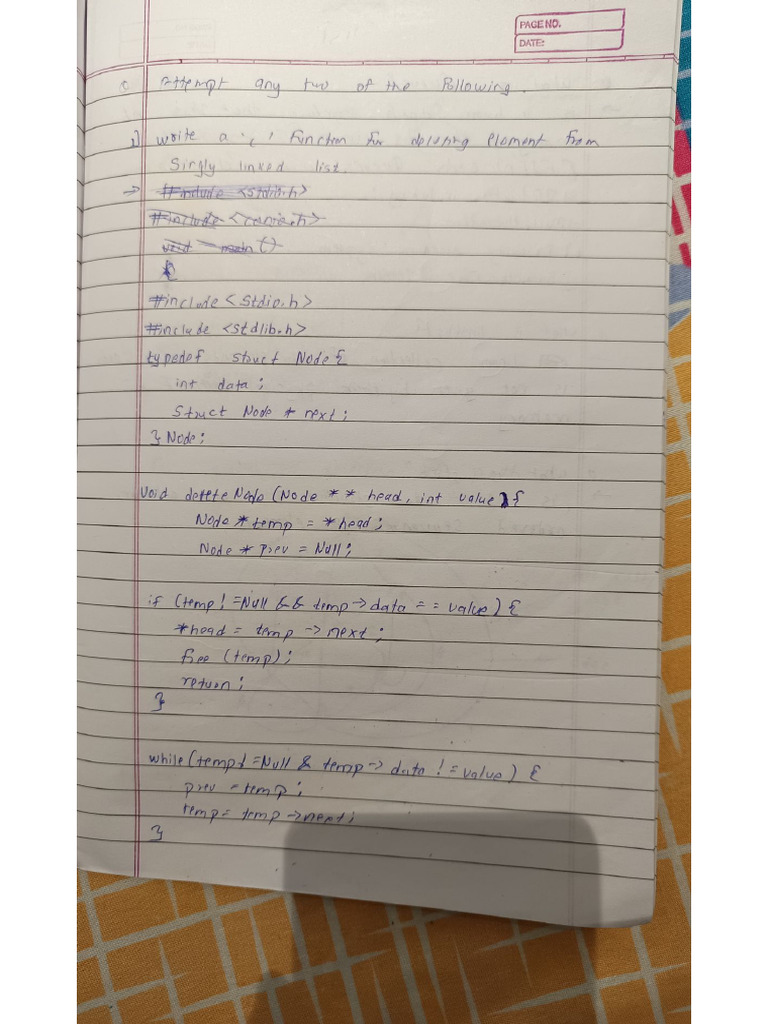 PAGE NO.
DATE:
Attempt any two of the following.
1) write a 'c' Function for deleting element from
Singly linked list.
→ #include <Stdio.h>
#include <conio.h>
void main ()
{
#include <Stdio.h>
#include <stdlib.h>
typedef struct Node {
int data ;
Struct Node * next ;
} Node;
Void delete Node (Node * * head, int value) {
Node * temp = * head ;
Node * prev = Null ;
if (temp ! = Null & & temp → data = = value) {
*head = temp → next ;
free (temp) ;
return ;
}
while (temp ! = Null & temp → data ! = value) {
prev = temp ;
temp = temp → next ;
}